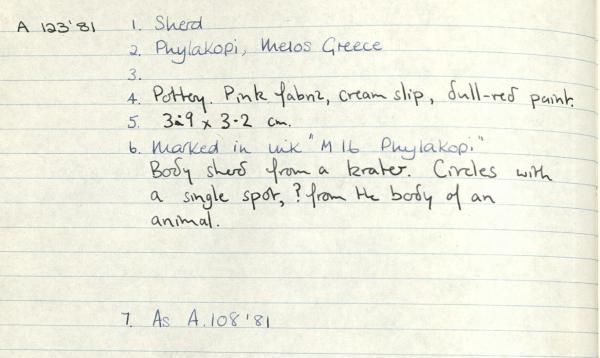 A 123'81 1. Sherd
2. Phylakopi, Melos Greece
3.
4. Pottery. Pink fabric, cream slip, dull-red paint.
5. 3.9 x 3.2 cm.
6. Marked in ink "M 16 Phylakopi"
Body sherd from a krater. Circles with
a single spot, ? from the body of an
animal.
7. As A.108'81